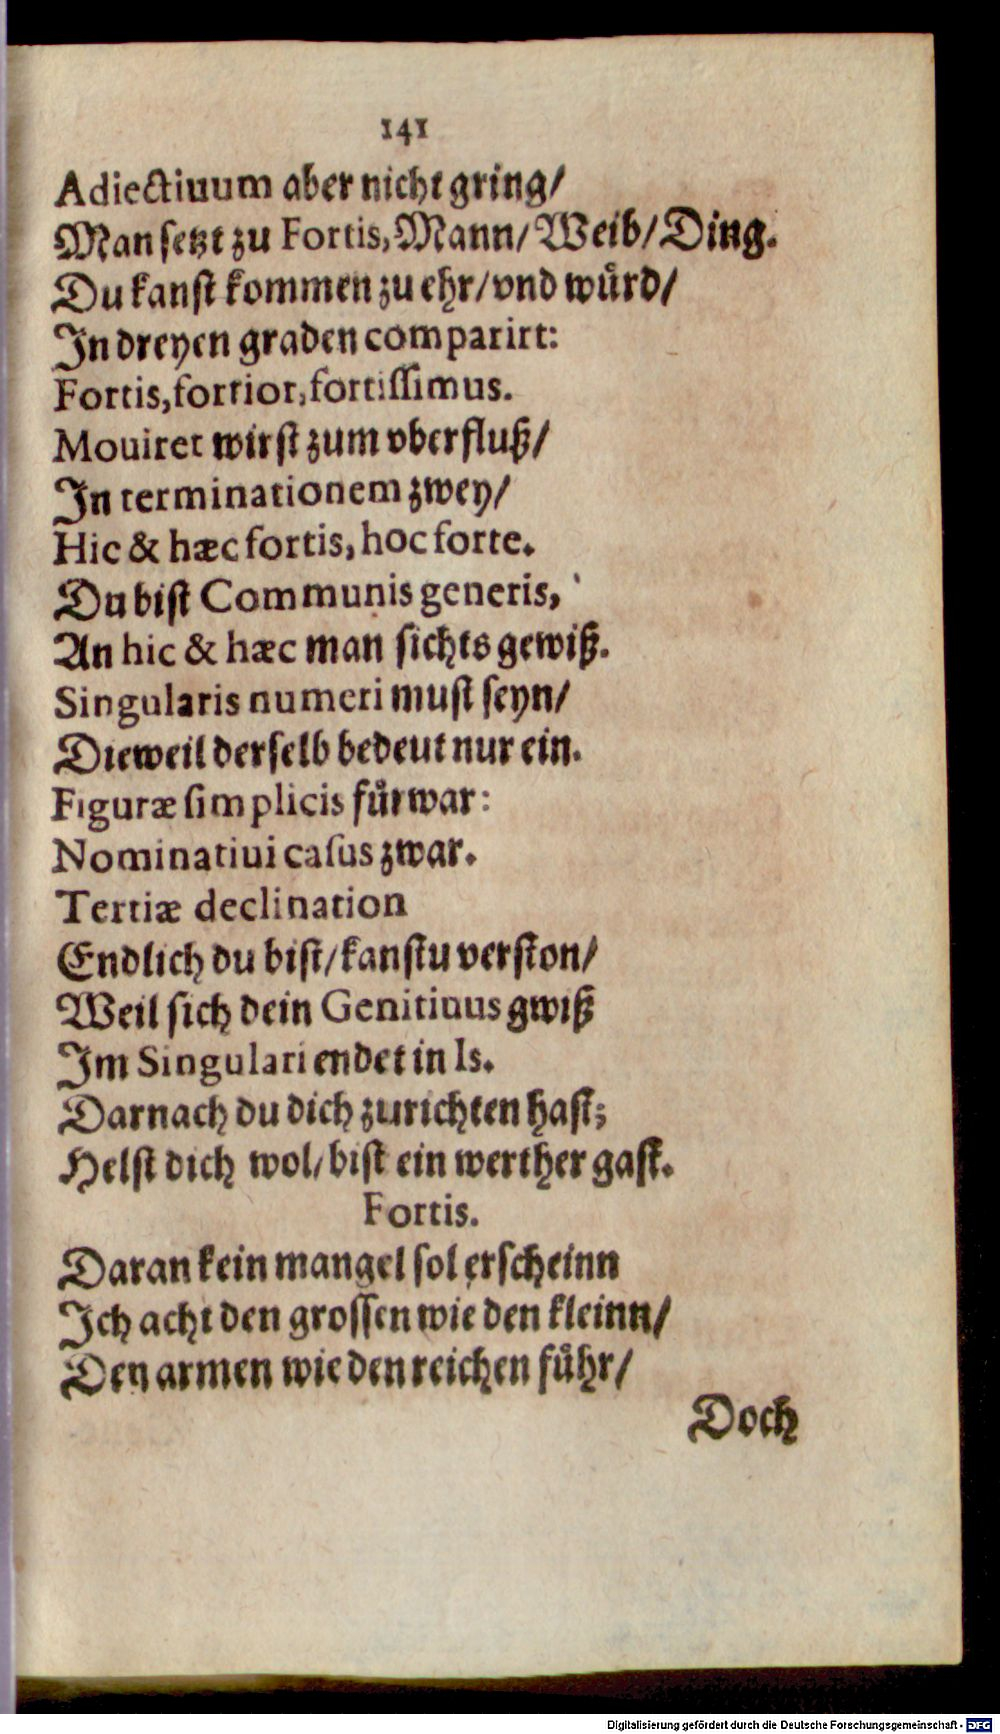 141
Adiectiuum aber nicht gring/
Man setzt zu Fortis, Mann/ Weib/ Ding.
Du kanst kommen zu ehr/ vnd wuͤrd/
In dreyen graden comparirt:
Fortis, fortior, fortissimus.
Mouiret wirst zum vberfluß/
In terminationem zwey/
Hic & hæc fortis, hoc forte.
Du bist Communis generis,
An hic & hæc man sichts gewiß.
Singularis numeri must seyn/
Dieweil derselb bedeut nur ein.
Figuræ simplicis fuͤrwar:
Nominatiui casus zwar.
Tertiæ declination
Endlich du bist/ kanstu verston/
Weil sich dein Genitiuus gwiß
Im Singulari endet in Is.
Darnach du dich zurichten hast;
Helst dich wol/ bist ein werther gast.
Fortis.
Daran kein mangel sol erscheinn
Ich acht den grossen wie den kleinn/
Den armen wie den reichen fuͤhr/
Doch
Digitalisierung gefördert durch die Deutsche Forschungsgemeinschaft - DFG